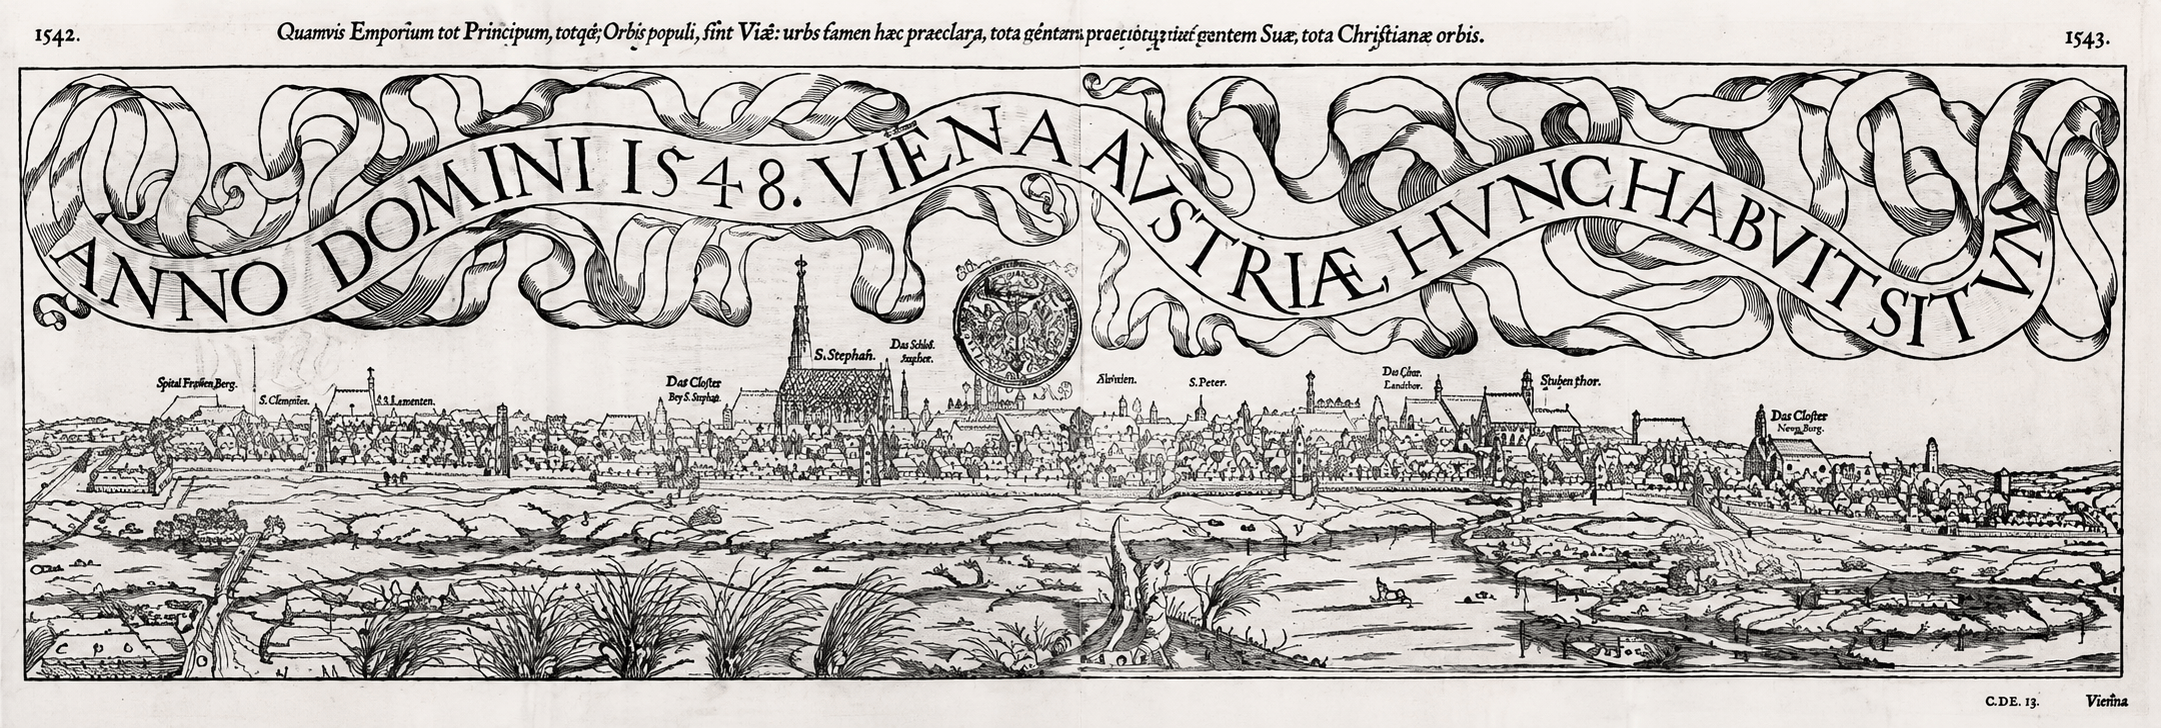 1542.
Quamvis Emporium tot Principum, Orbis populi, sint Viæ: urbs tamen hæc praeclara, tota gentem Suæ, tota Christianæ orbis.
1543.
ANNO DOMINI 1548. VIENA AVSTRIÆ, HVNC HABVIT SITVM
S. Stephan.
Das Schloß.
Spital Berg.
S. Clementen.
Das Closter
Bey S. Stephan.
S. Peter.
Stuben thor.
Das Closter
Neun Burg.
C.DE. 13.
Vienna